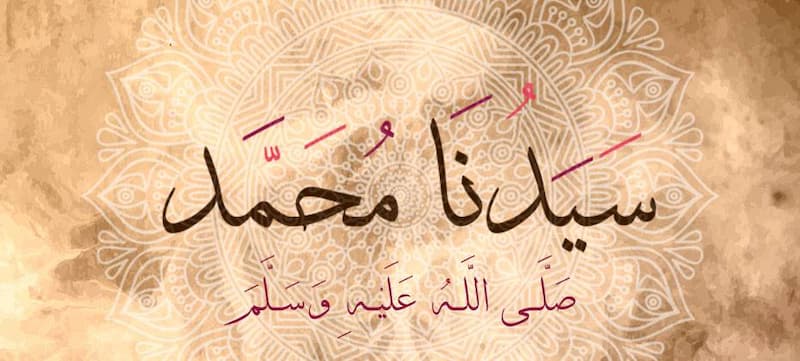 سَيَدُنَا مُحَمَّد
صَلَّى اللَّهُ عَلَيهِ وَسَلَّمَ